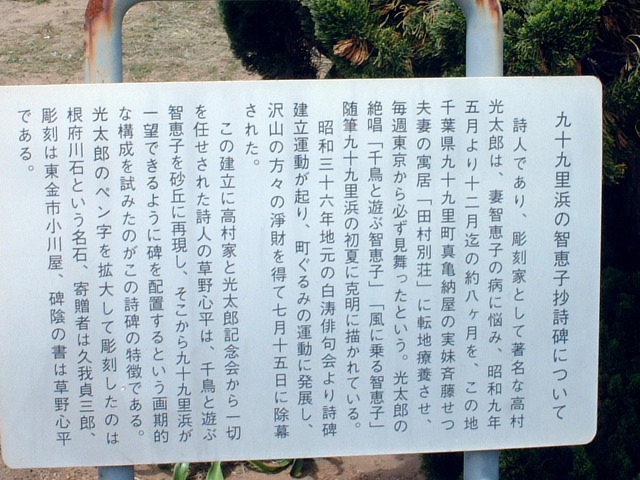 九十九里浜の智恵子抄詩碑について
詩人であり、彫刻家として著名な高村
光太郎は、妻智恵子の病に悩み、昭和九年
五月より十二月迄の約八ヶ月を、この地
千葉県九十九里町真亀納屋の実妹斉藤せつ
夫妻の寓居「田村別荘」に転地療養させ、
毎週東京から必ず見舞ったという。光太郎の
絶唱「千鳥と遊ぶ智恵子」「風に乗る智恵子」
随筆九十九里浜の初夏に克明に描かれている。
昭和三十六年地元の白涛俳句会より詩碑
建立運動が起り、町ぐるみの運動に発展し、
沢山の方々の浄財を得て七月十五日に除幕
された。
この建立に高村家と光太郎記念会から一切
を任せされた詩人の草野心平は、千鳥と遊ぶ
智恵子を砂丘に再現し、そこから九十九里浜が
一望できるように碑を配置するという画期的
な構成を試みたのがこの詩碑の特徴である。
光太郎のペン字を拡大して彫刻したのは
根府川石という名石、寄贈者は久我貞三郎、
彫刻は東金市小川屋、碑陰の書は草野心平
である。